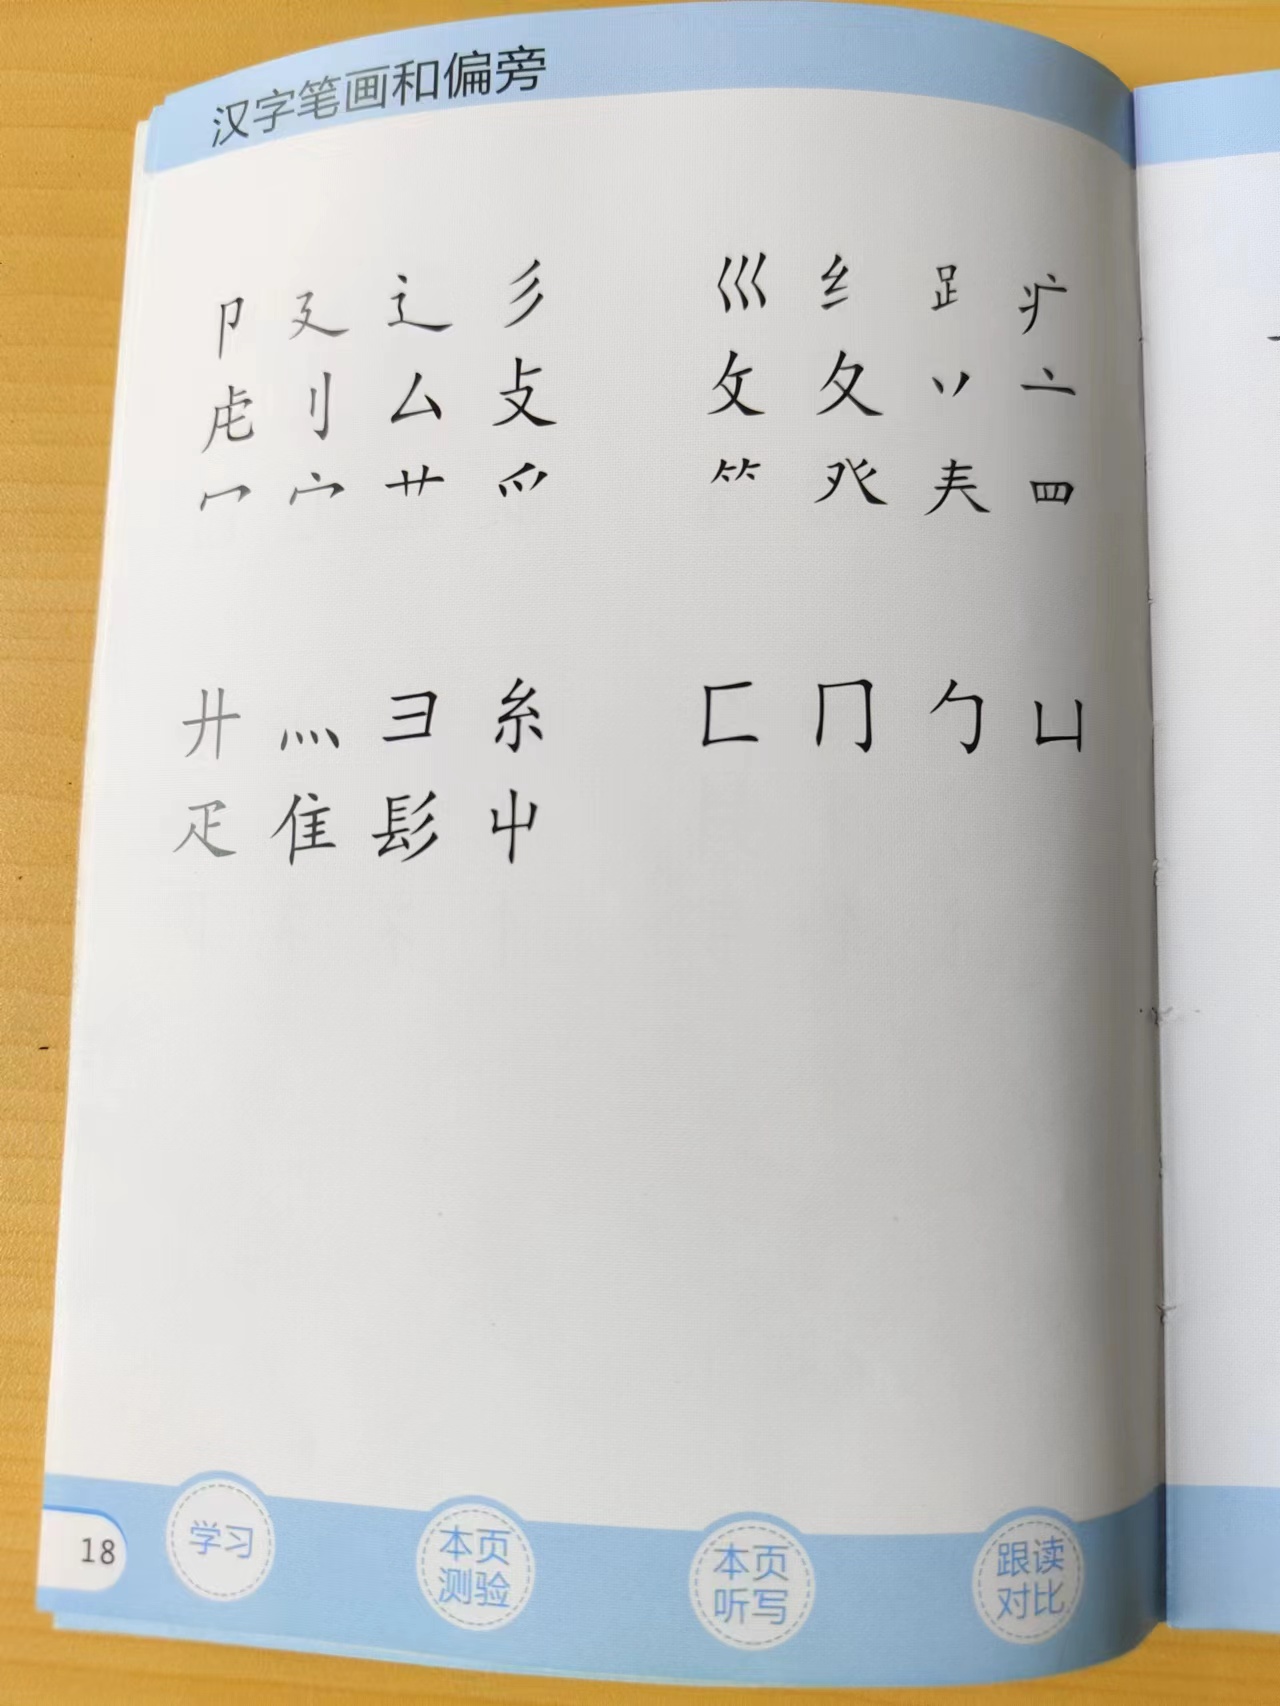 汉字笔画和偏旁
卩 廴 辶 彡 巛 纟 𧾷 疒
虍 刂 厶 攴 攵 夂 丷 亠
冖 宀 艹 爫 ⺮ 癶 𡗗 罒
廾 灬 彐 糸 匚 冂 勹 凵
疋 隹 髟 屮
18
学习
本页测验
本页听写
跟读对比